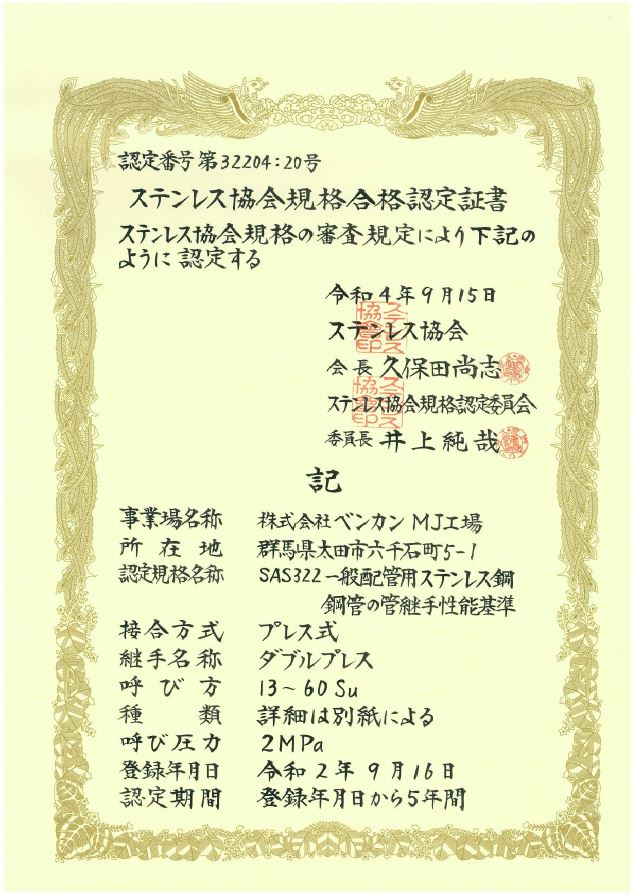 認定番号第32204:20号
ステンレス協会規格合格認定証書
ステンレス協会規格の審査規定により下記の
ように認定する
令和4年9月15日
ステンレス協会
会長 久保田尚志
ステンレス協会規格認定委員会
委員長 井上純哉
記
事業場名称 株式会社ベンカン MJ工場
所在地 群馬県太田市六千石町5-1
認定規格名称 SAS322 一般配管用ステンレス鋼
鋼管の管継手性能基準
接合方式 プレス式
継手名称 ダブルプレス
呼び方 13~60Su
種類 詳細は別紙による
呼び圧力 2MPa
登録年月日 令和2年9月16日
認定期間 登録年月日から5年間